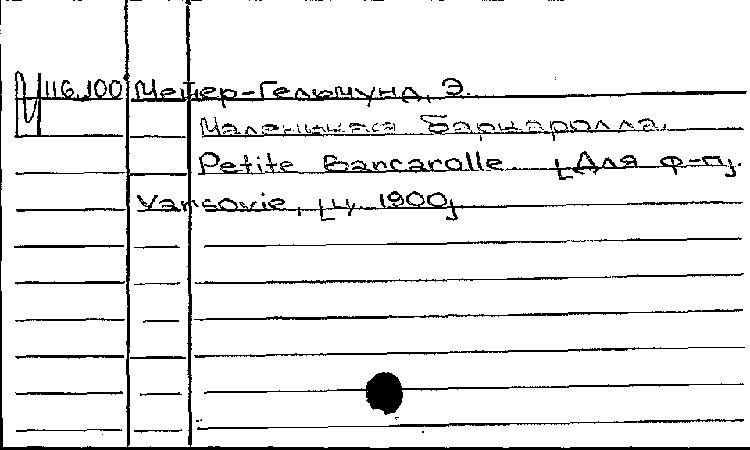 И 116.100 Мейер-Гельмунд, Э.
Маленькая баркаролла.
Petite Barcarolle. [Для ф-п].
Varsovie, [ц. 1900]